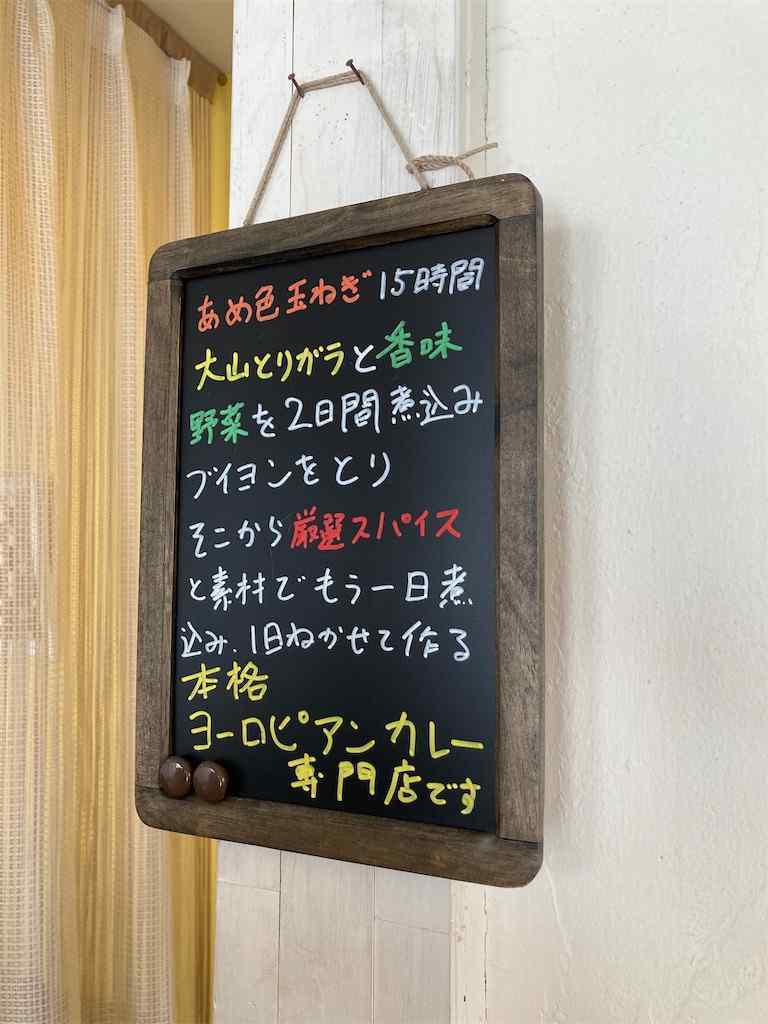 あめ色玉ねぎ15時間
大山とりガラと香味
野菜を2日間煮込み
ブイヨンをとり
そこから厳選スパイス
と素材でもう一日煮
込み、1日ねかせて作る
本格
ヨーロピアンカレー
専門店です